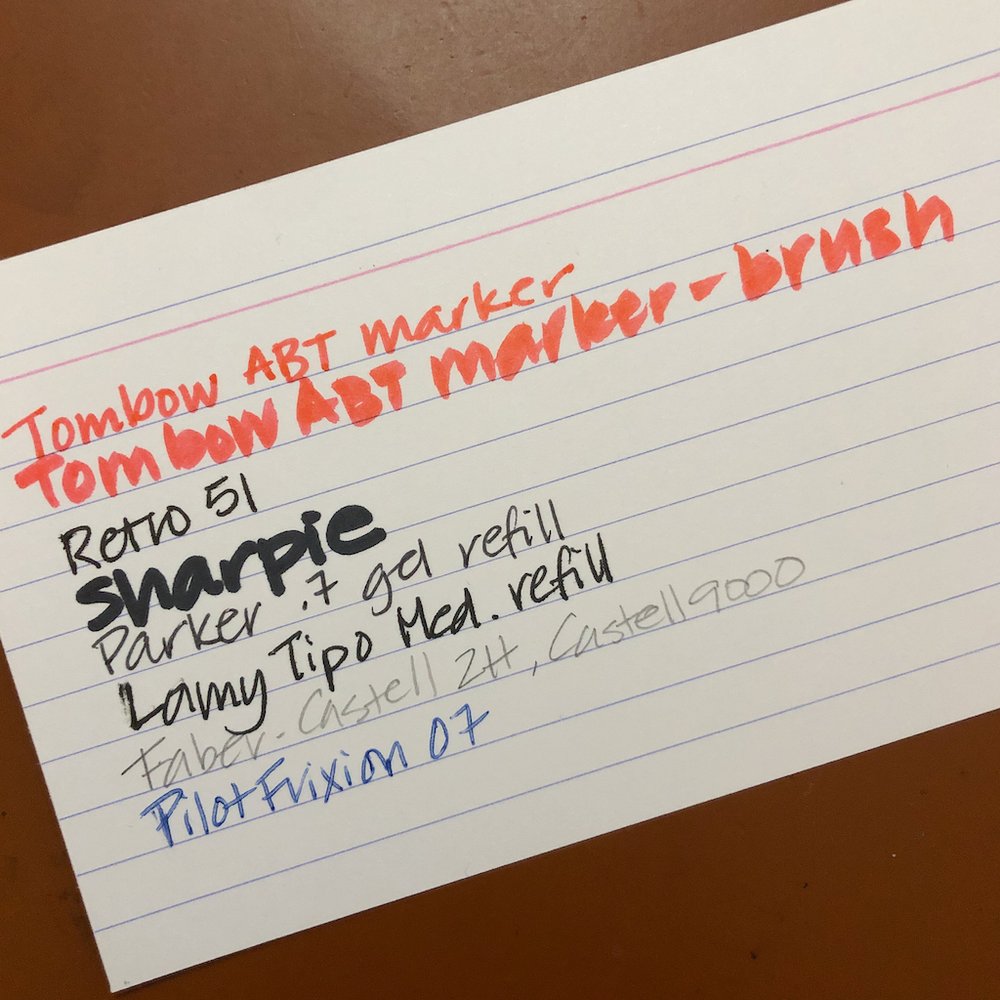 Tombow ABT marker
Tombow ABT marker - brush
Retro 51
sharpie
Parker .7 gel refill
Lamy Tipo Med. refill
Faber-Castell 2H, Castell 9000
Pilot Frixion 07